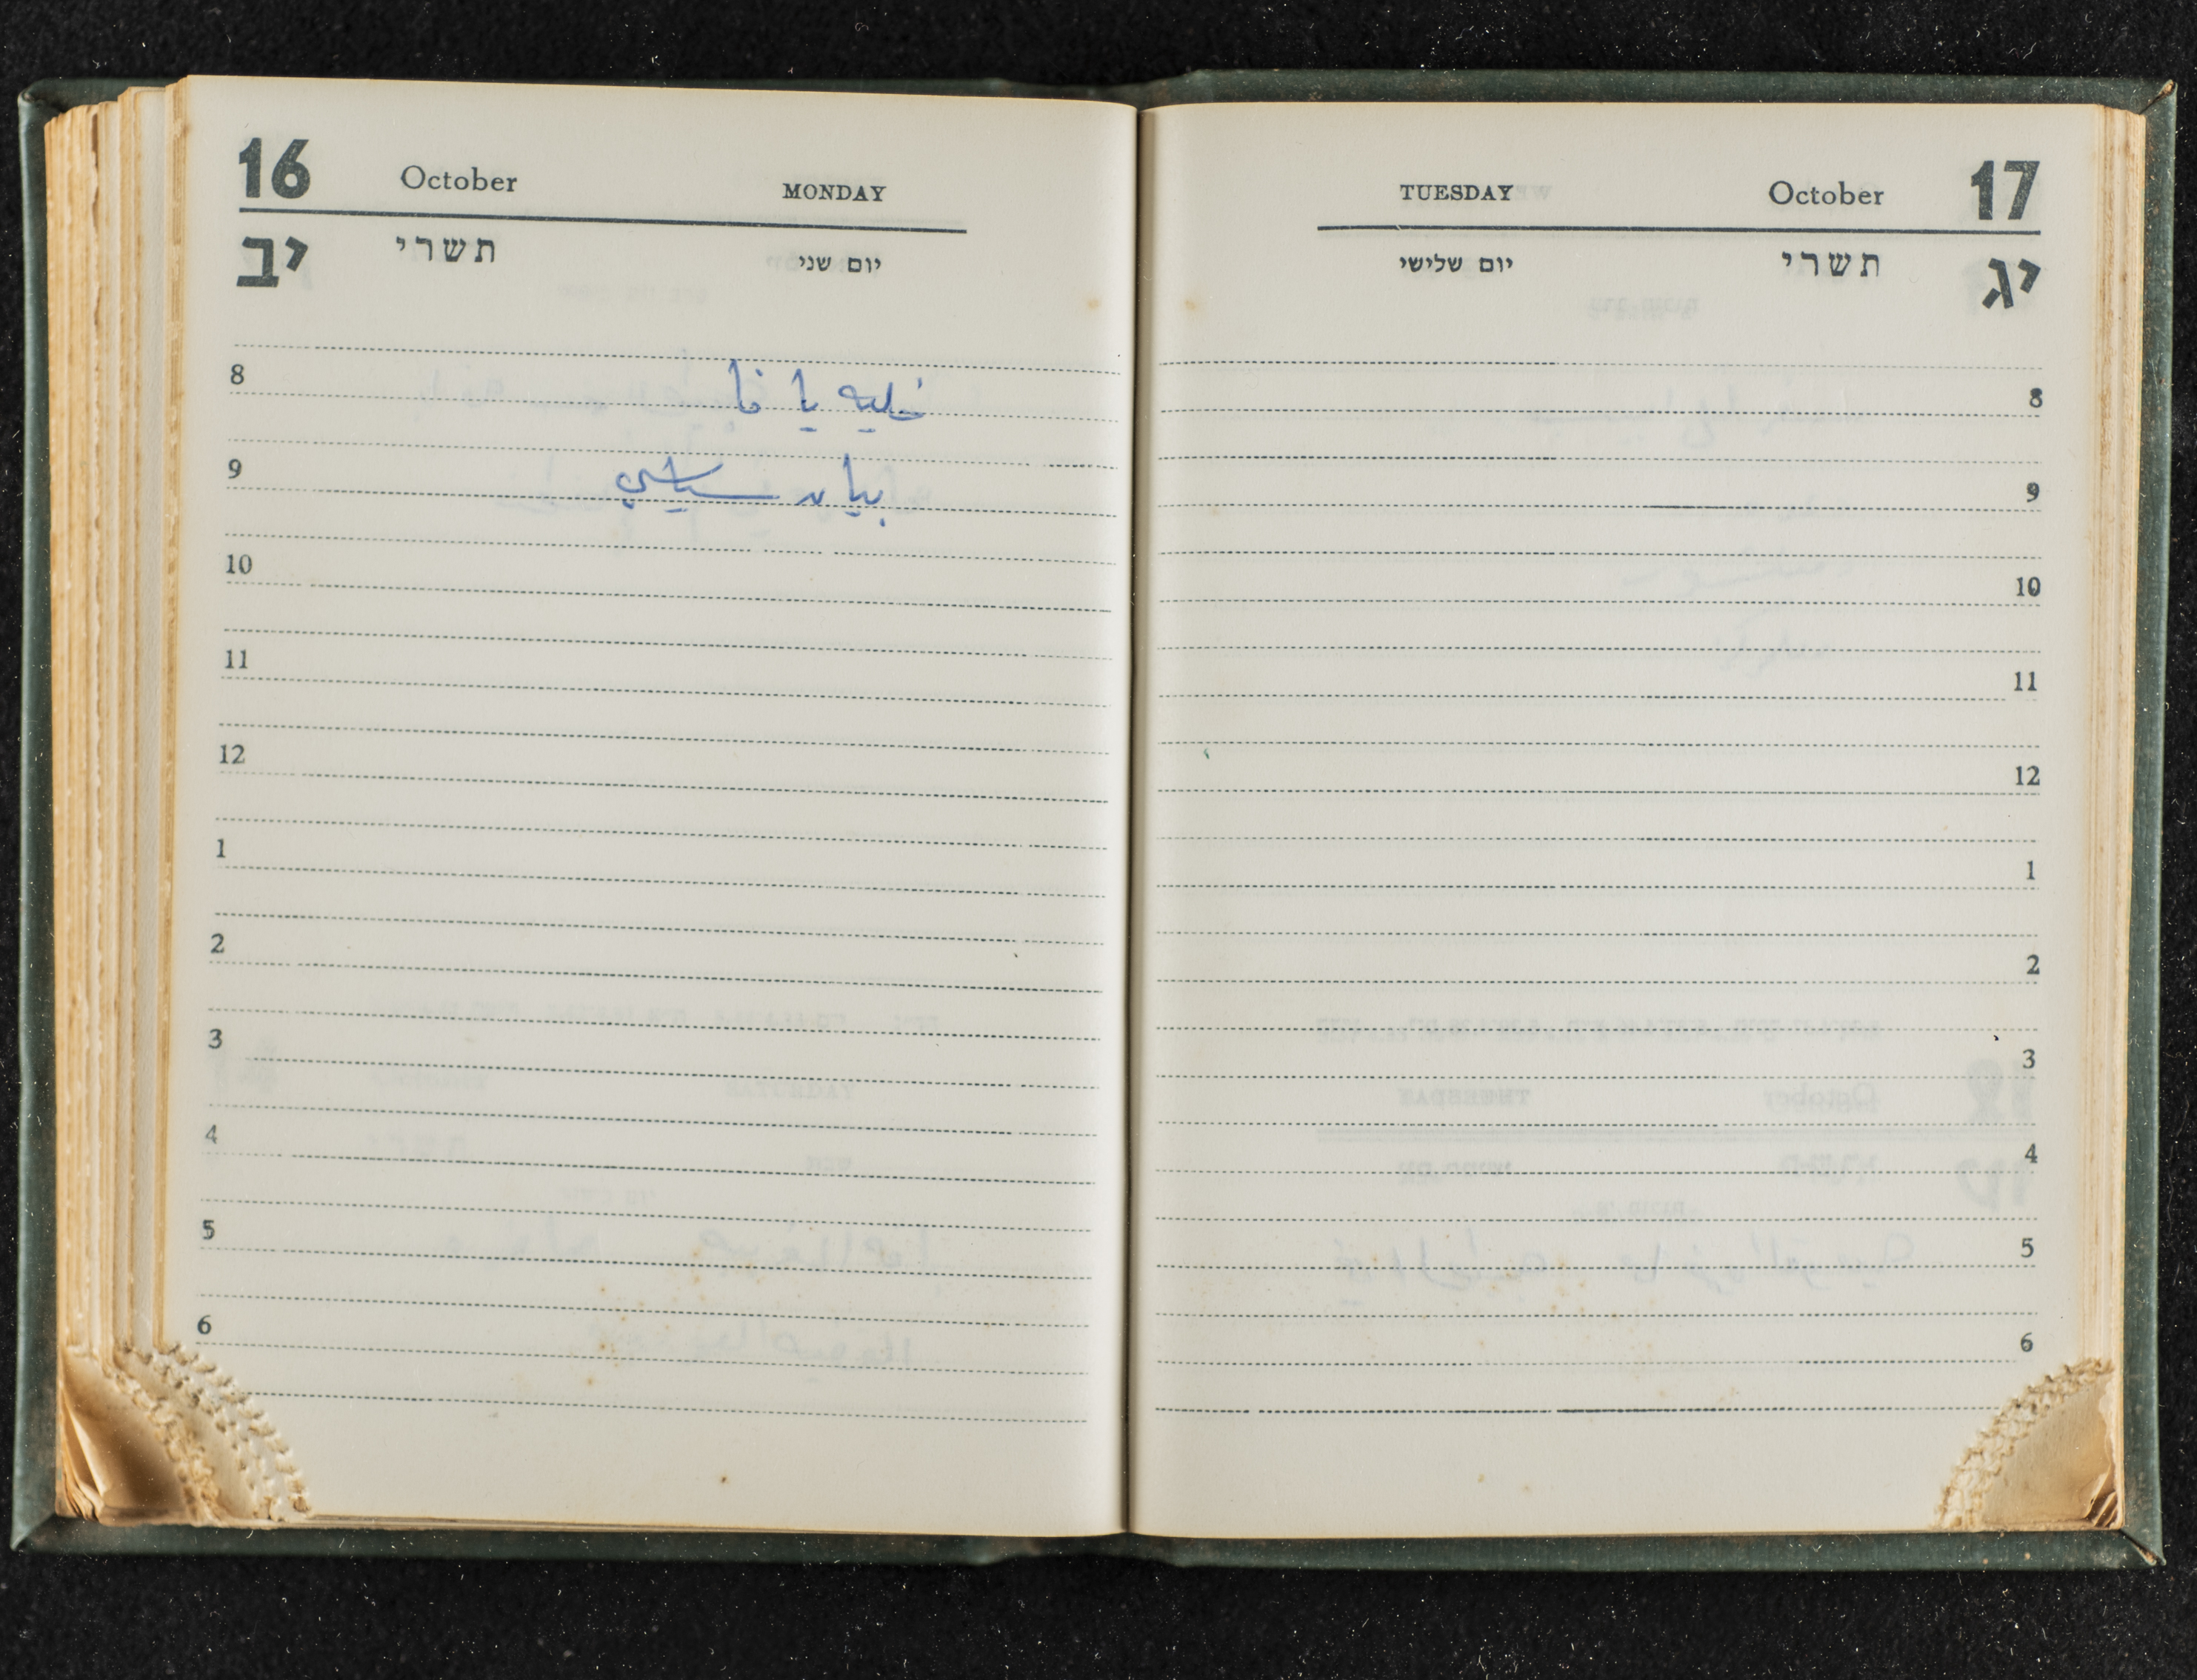 16 October MONDAY
יב תשרי יום שני
8 خليه يافا
9 بيان سياسي
10
11
12
1
2
3
4
5
6
TUESDAY October 17
יום שלישי תשרי יג
8
9
10
11
12
1
2
3
4
5
6